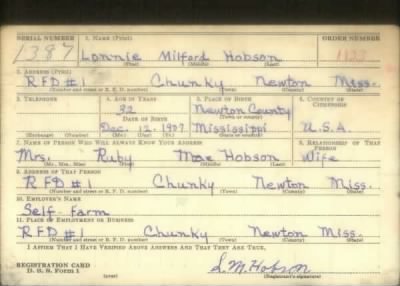 SERIAL NUMBER 1. NAME (Print) ORDER NUMBER
1387 Lonnie Milford Hobson 1123
(First) (Middle) (Last)
2. ADDRESS (Print)
RFD#1 Chunky Newton Miss.
(Number and street or R. F. D. number) (Town) (County) (State)
3. TELEPHONE 4. AGE IN YEARS 5. PLACE OF BIRTH 6. COUNTRY OF CITIZENSHIP
32 Newton County
DATE OF BIRTH (Town or county)
Dec. 12, 1907 Mississippi U.S.A.
(Exchange) (Number) (Mo.) (Day) (Yr.) (State or country)
7. NAME OF PERSON WHO WILL ALWAYS KNOW YOUR ADDRESS 8. RELATIONSHIP OF THAT PERSON
Mrs. Ruby Mae Hobson Wife
(Mr., Mrs., Miss) (First) (Middle) (Last)
9. ADDRESS OF THAT PERSON
RFD#1 Chunky Newton Miss.
(Number and street or R. F. D. number) (Town) (County) (State)
10. EMPLOYER'S NAME
Self- Farm
11. PLACE OF EMPLOYMENT OR BUSINESS
RFD#1 Chunky Newton Miss.
(Number and street or R. F. D. number) (Town) (County) (State)
I AFFIRM THAT I HAVE VERIFIED ABOVE ANSWERS AND THAT THEY ARE TRUE.
REGISTRATION CARD L.M. Hobson
D. S. S. Form 1 (over) (Registrant's signature)